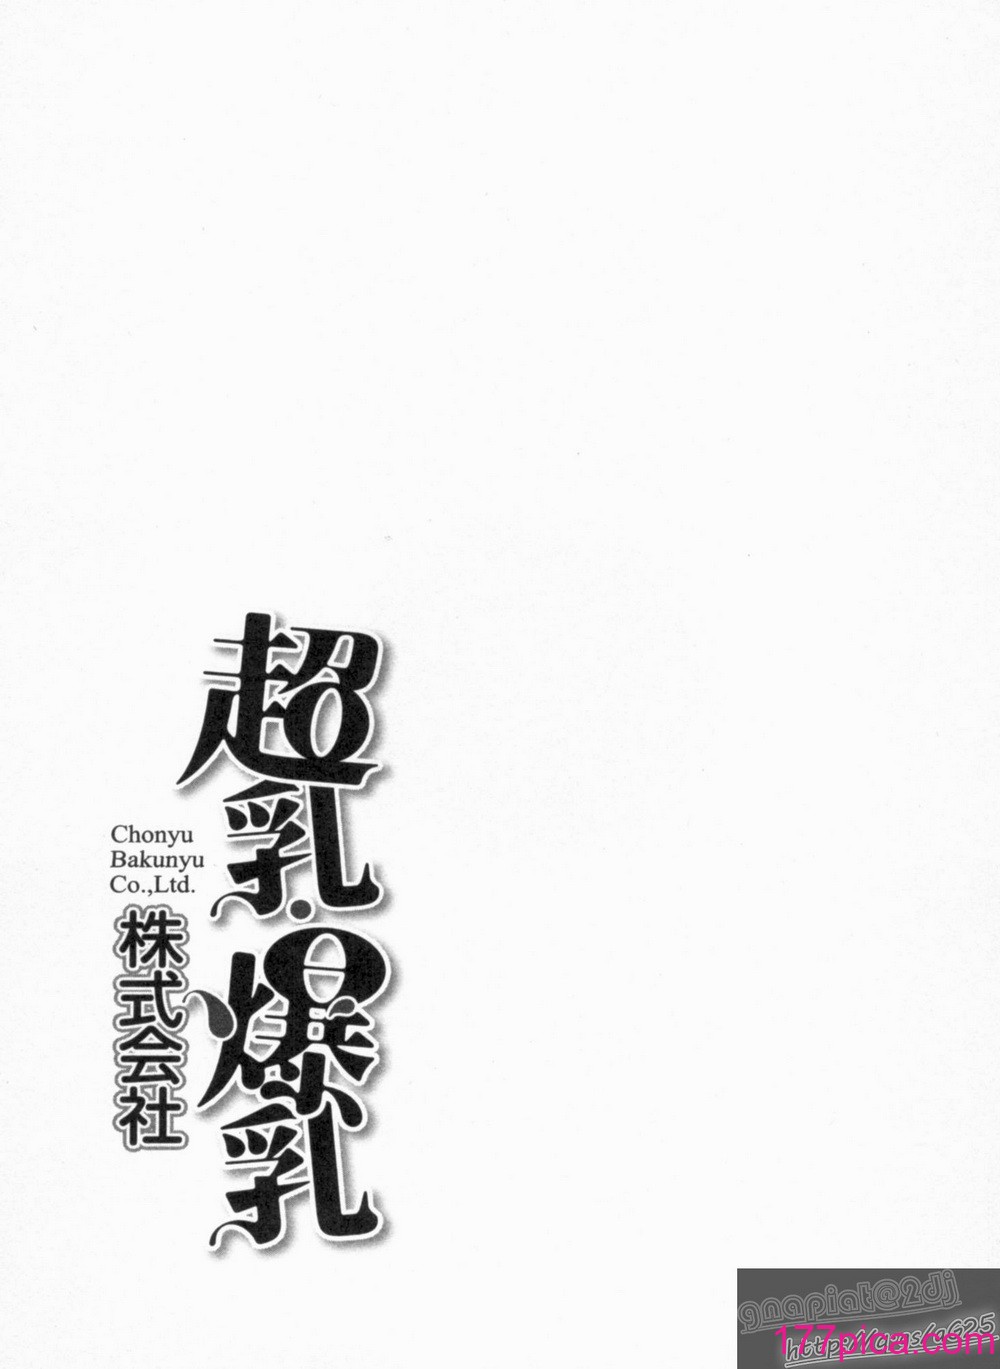 超乳・爆乳
Chonyu
Bakunyu
Co.,Ltd.
株式会社
gnapiat@2dj
177pica.com